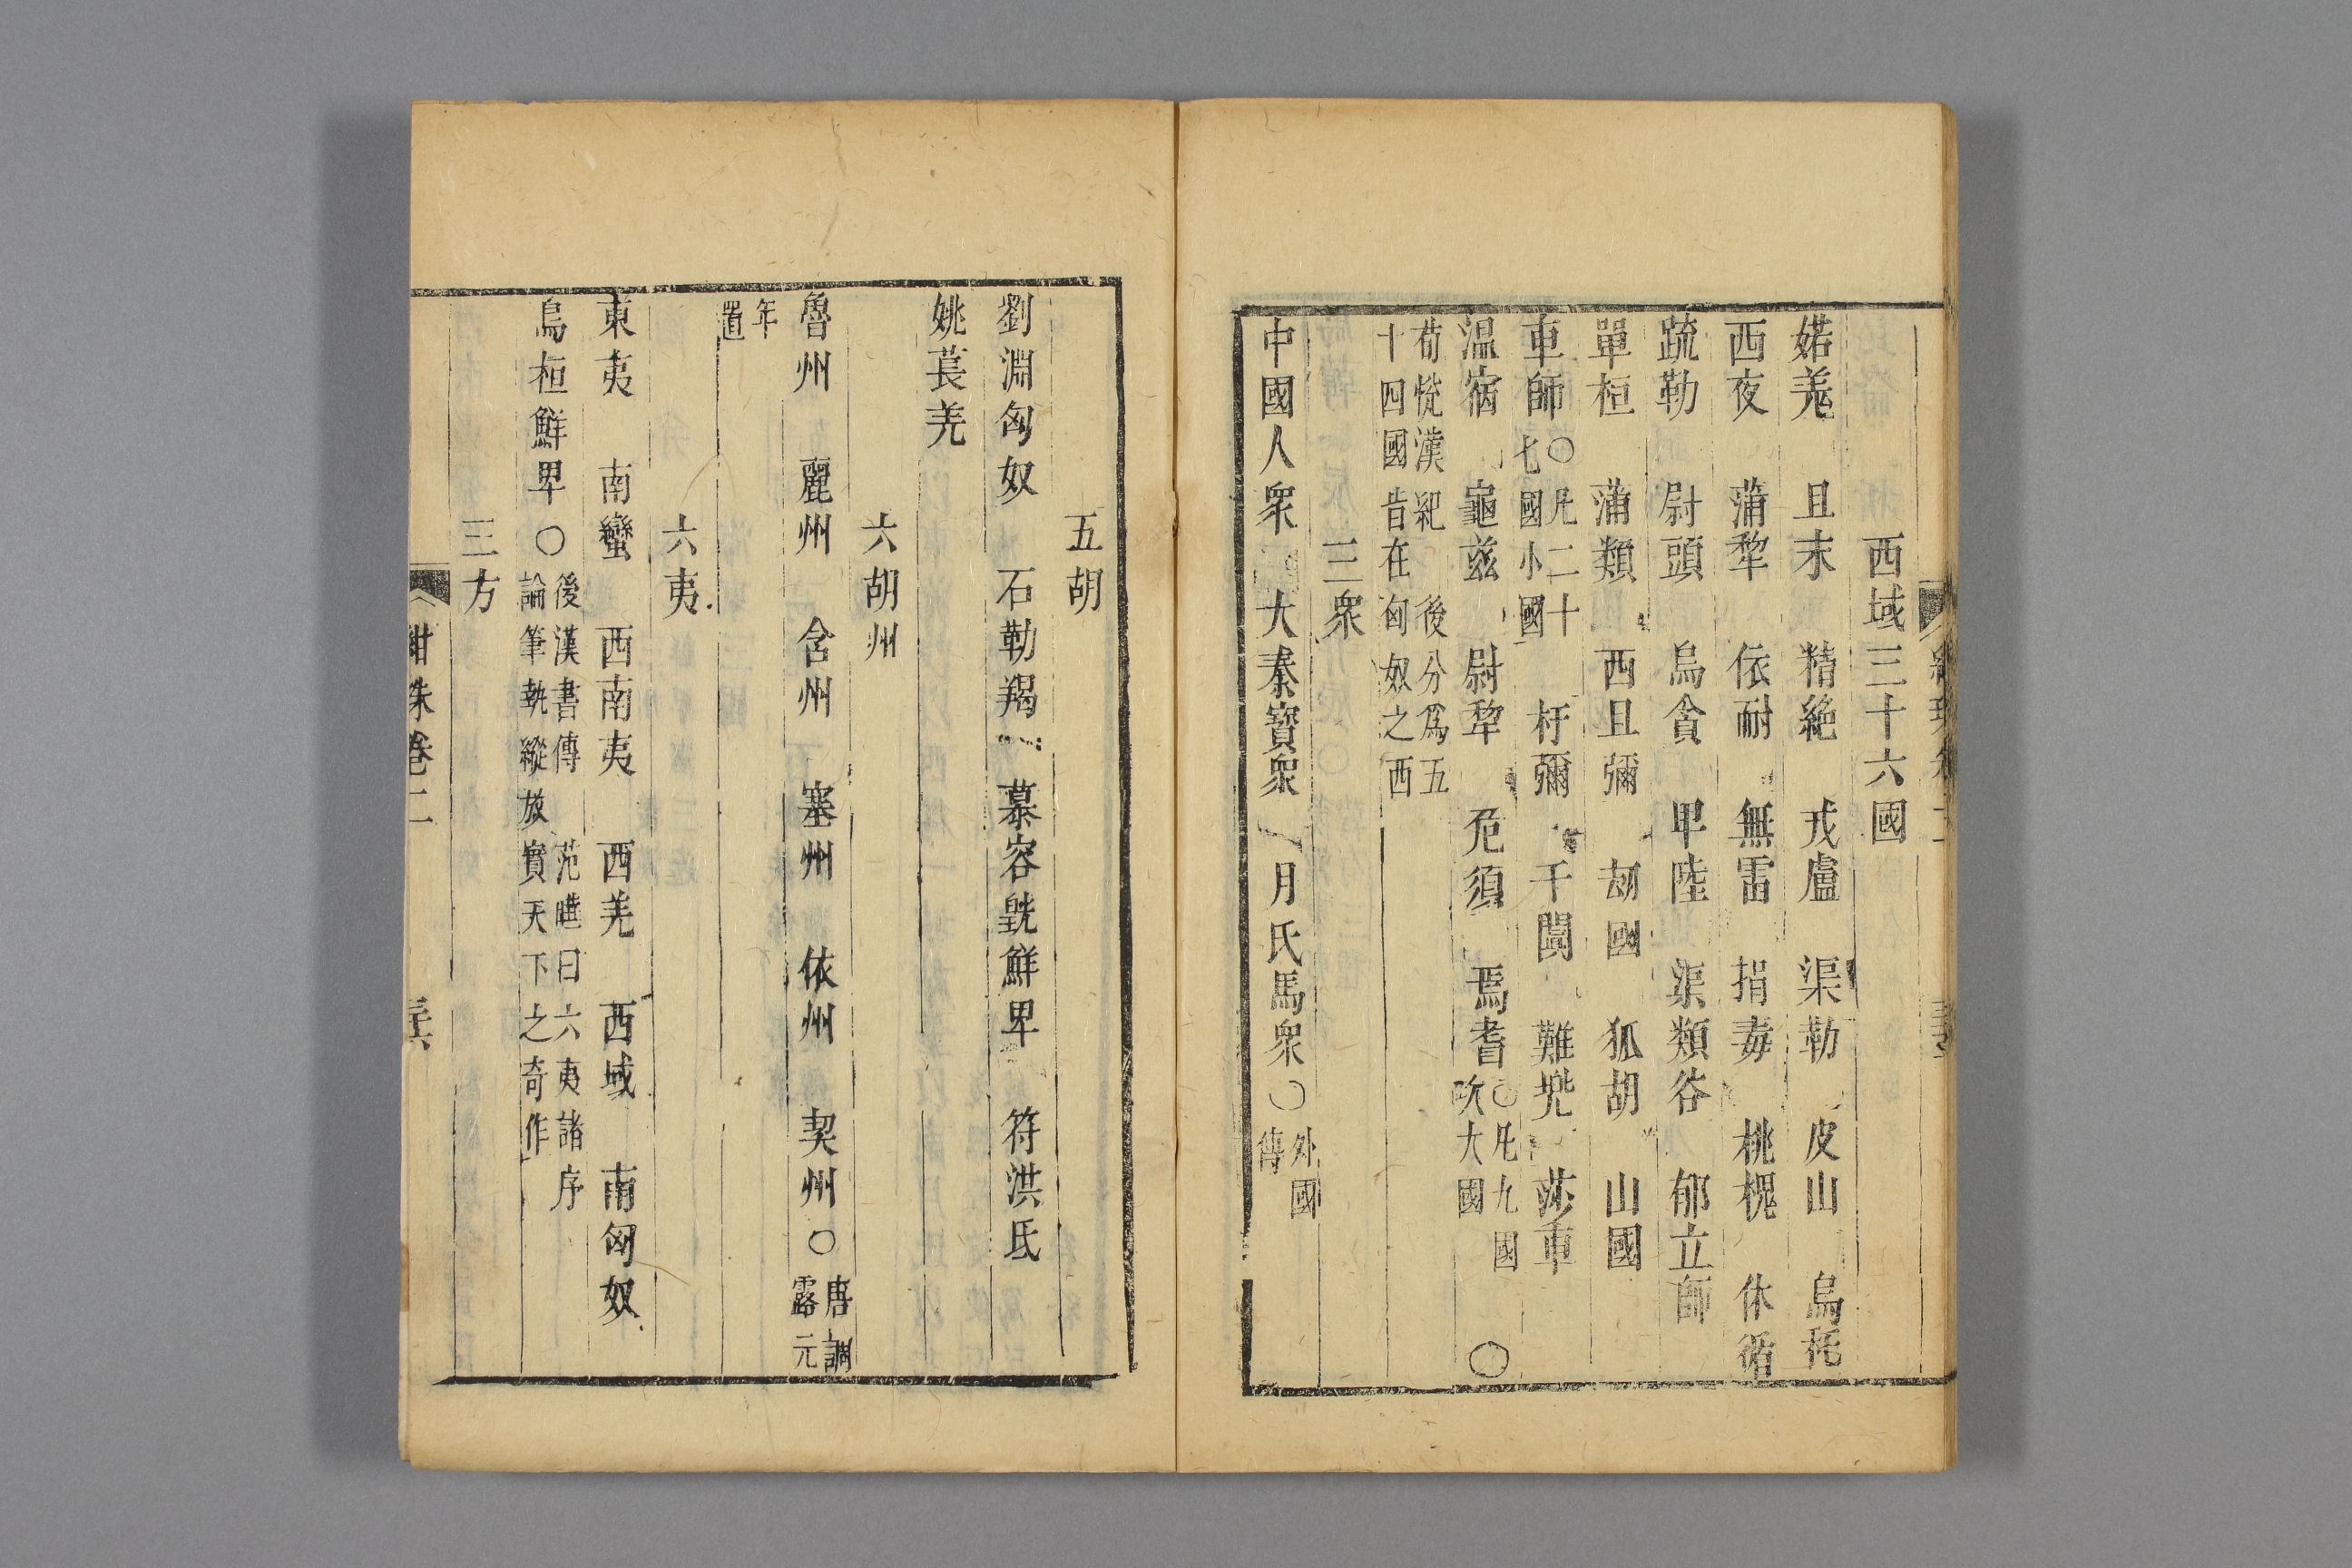 西域三十六國
婼羌　且末　精絶　戎盧　渠勒　皮山　烏秅
西夜　蒲犂　依耐　無雷　捐毒　桃槐　休循
疏勒　尉頭　烏貪　卑陸　渠類谷　郁立師
單桓　蒲類　西且彌　刼國　狐胡　山國
車師
○凡二十
七國小國
杅彌　于闐　難兠　莎車
温宿　龜兹　尉犂　危須　焉耆
○凡九國
次大國
○
荀悦漢紀　後分爲五
十四國皆在匈奴之西
三衆
中國人衆　大秦寶衆　月氏馬衆○
外國
傳
五胡
劉淵匈奴　石勒羯　慕容皝鮮卑　符洪氐
姚萇羌
六胡州
魯州　麗州　含州　塞州　依州　契州○
唐調
露元
年
置
六夷
東夷　南蠻　西南夷　西羌　西域　南匈奴
烏桓鮮卑○
後漢書傳　范曄曰六夷諸序
論筆執縱放實天下之奇作
三方
紺珠卷二